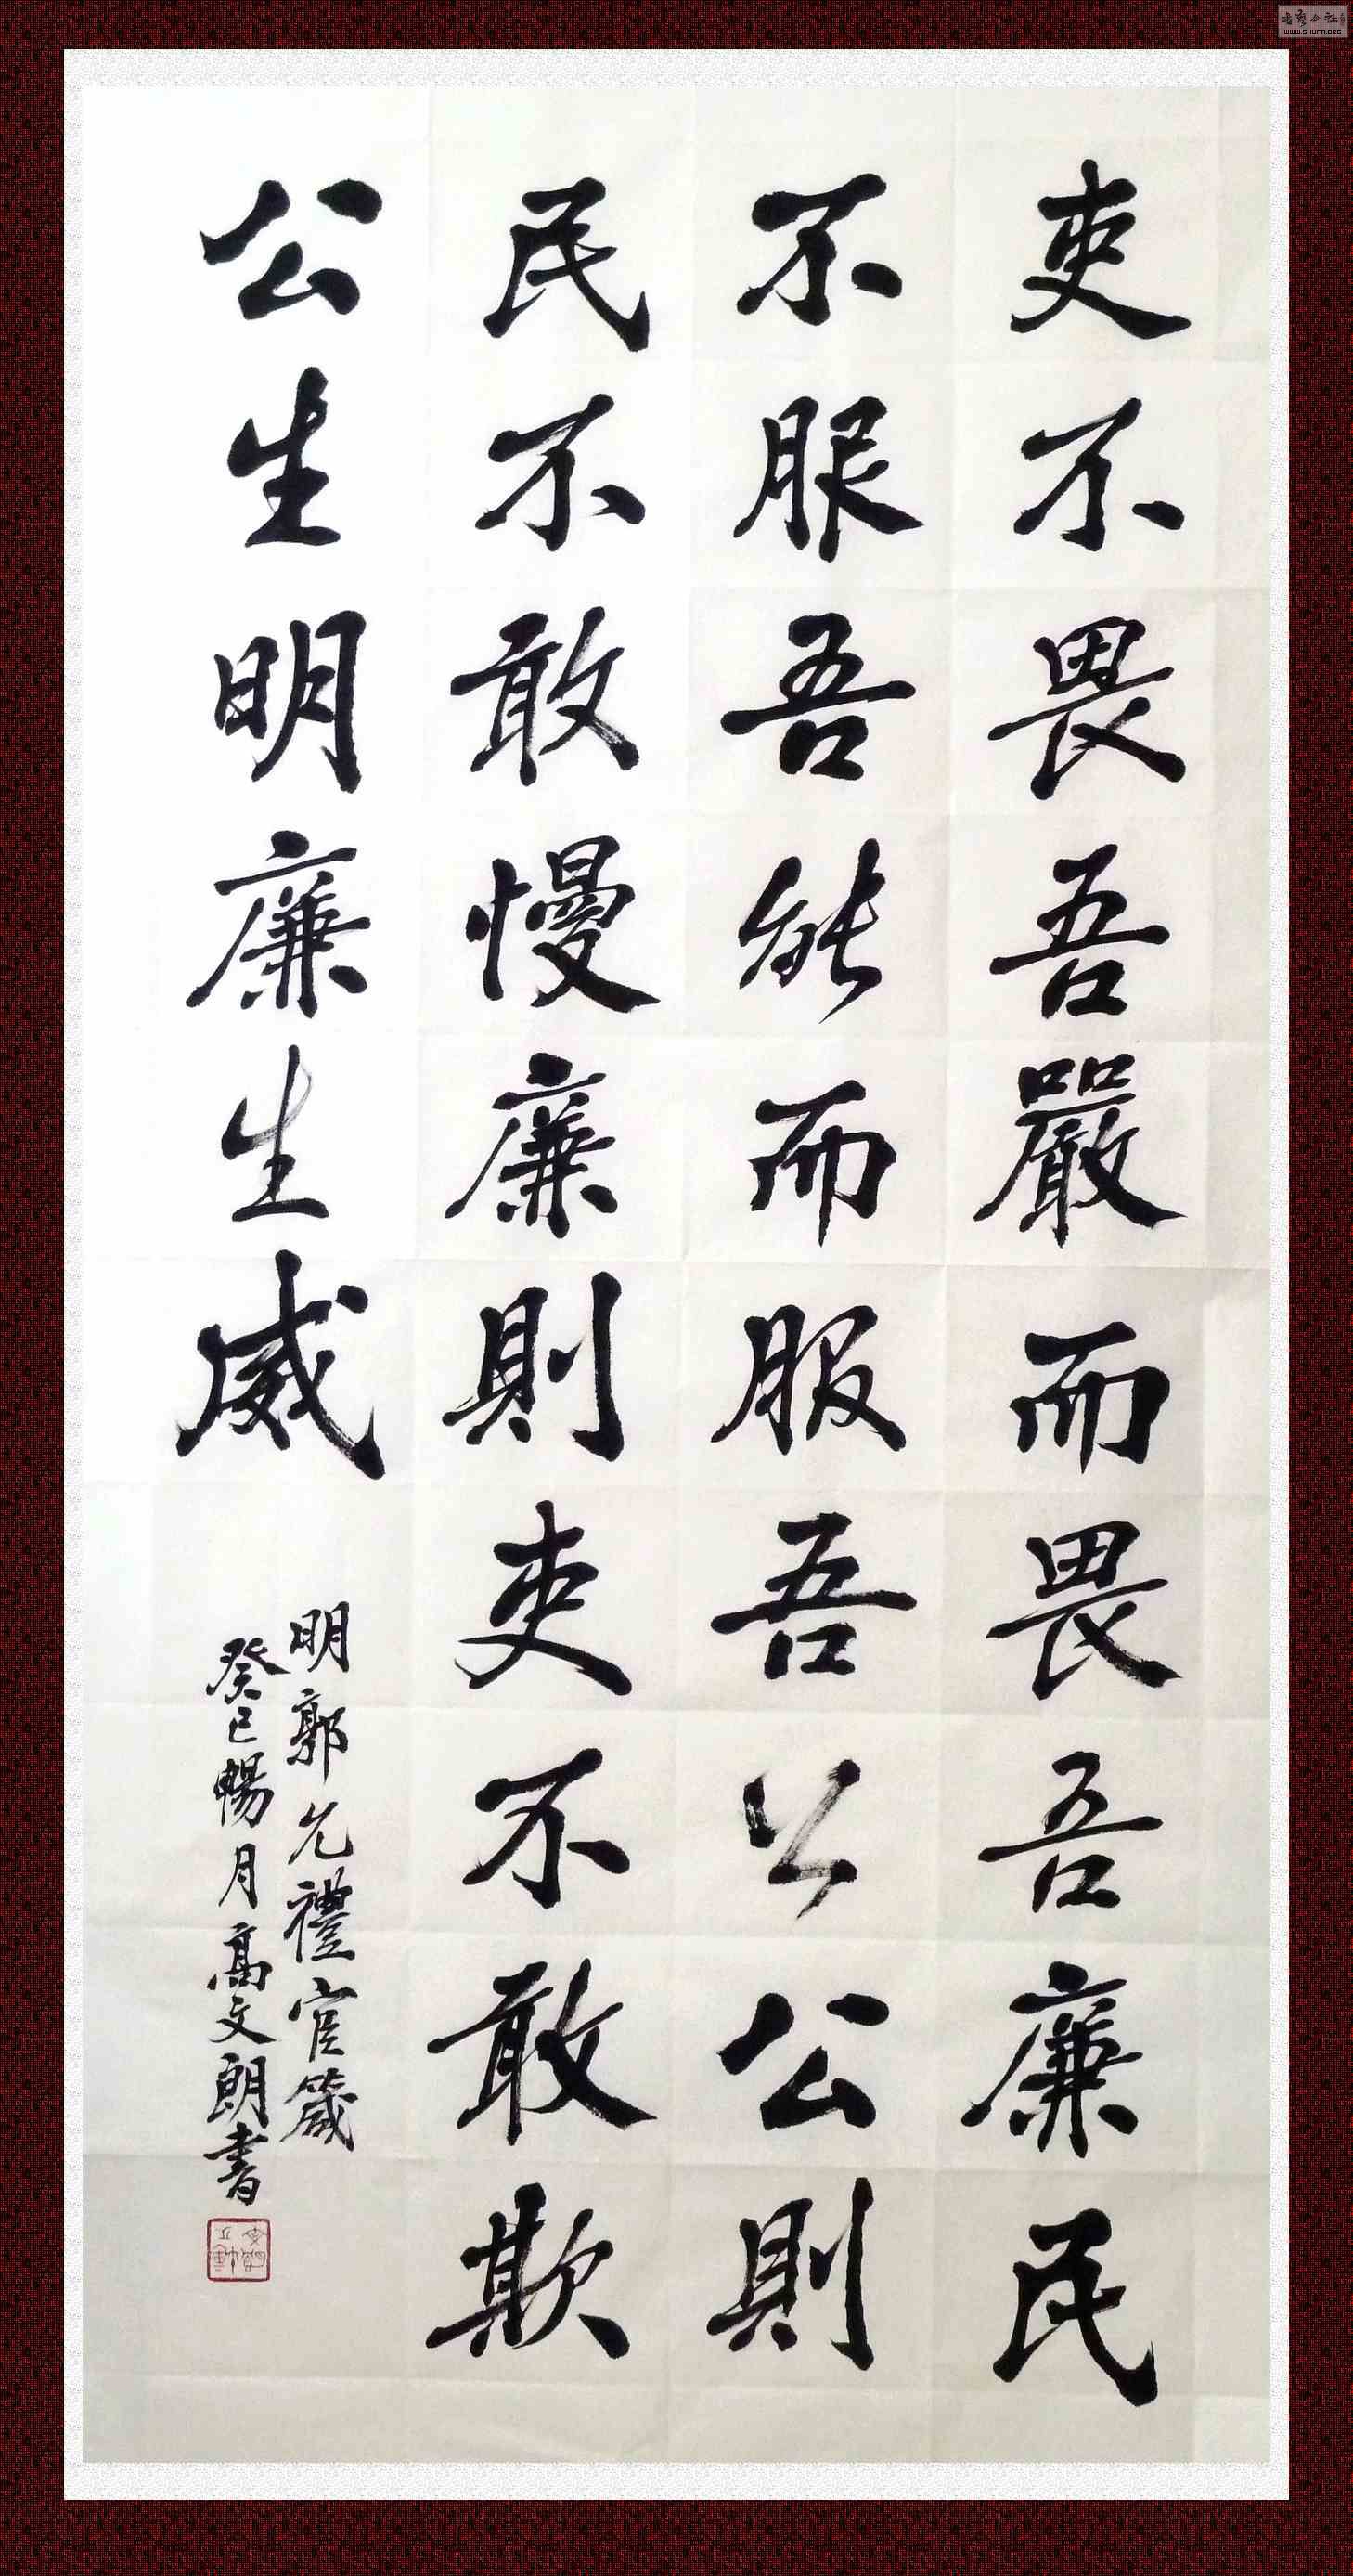 吏不畏吾嚴而畏吾廉民
不服吾能而服吾公公則
民不敢慢廉則吏不敢欺
公生明廉生威
明郭允禮官箴
癸巳暢月高文朗書
WWW.SHUFA.ORG